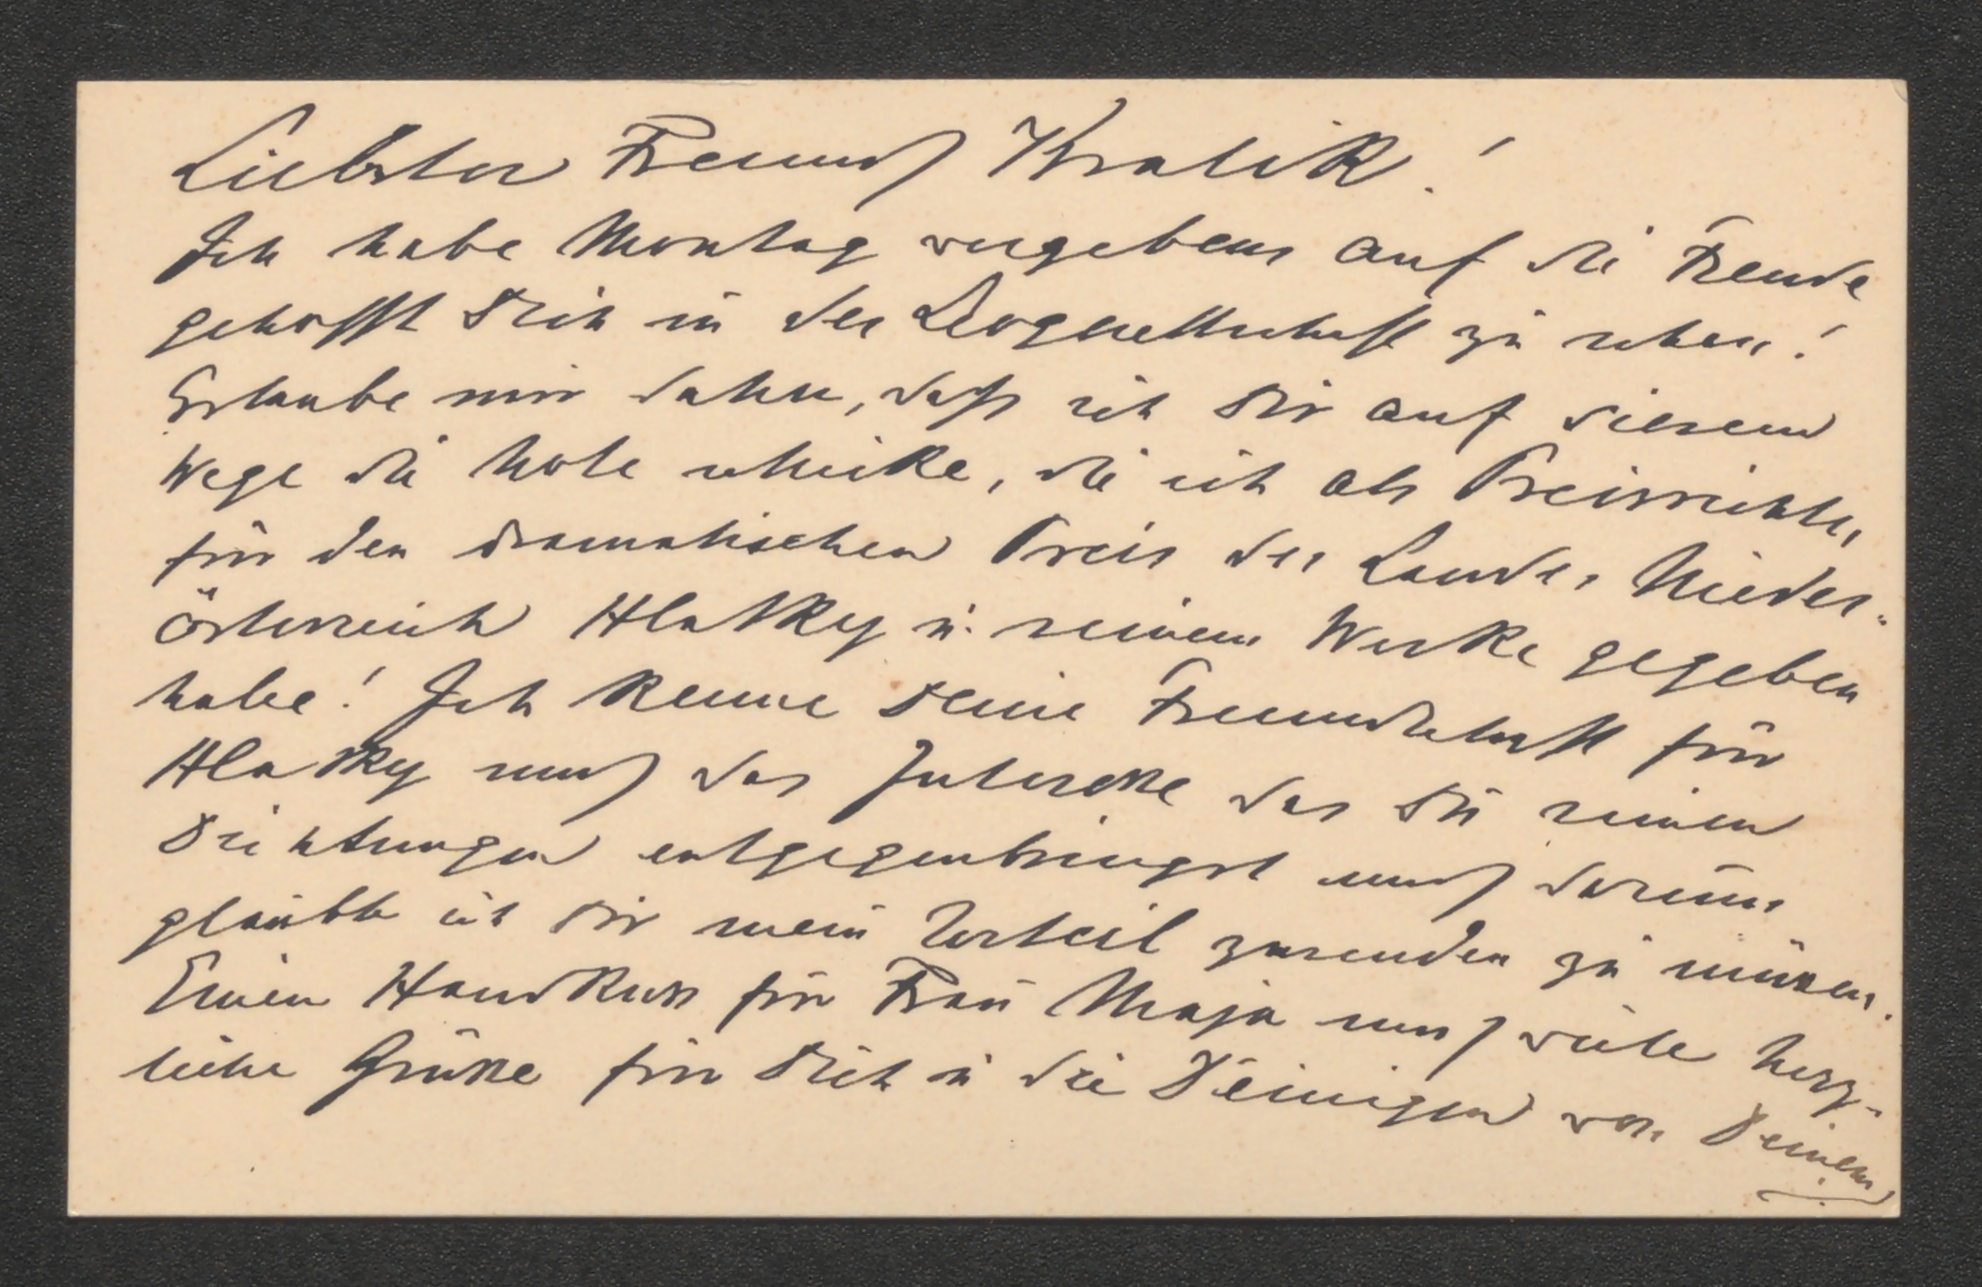 Liebster Freund Kralik!
Ich habe Montag vergebens auf die Freude
gehofft Dich in der Leogesellschaft zu sehen!
Erlaube mir daher, daß ich Dir auf diesem
Wege die Note schicke, die ich als Preisrichter
für den dramatischen Preis des Landes Nieder-
österreich Hlatky u. seinem Werke gegeben
habe! Ich kenne Deine Freundschaft für
Hlatky und das Interesse das Du seinen
Dichtungen entgegenbringst und darum
glaubte ich Dir mein Urteil zusenden zu müssen.
Einen Handkuss für Frau Maja und viele herz-
liche Grüsse für Dich u die Deinigen von Deinem